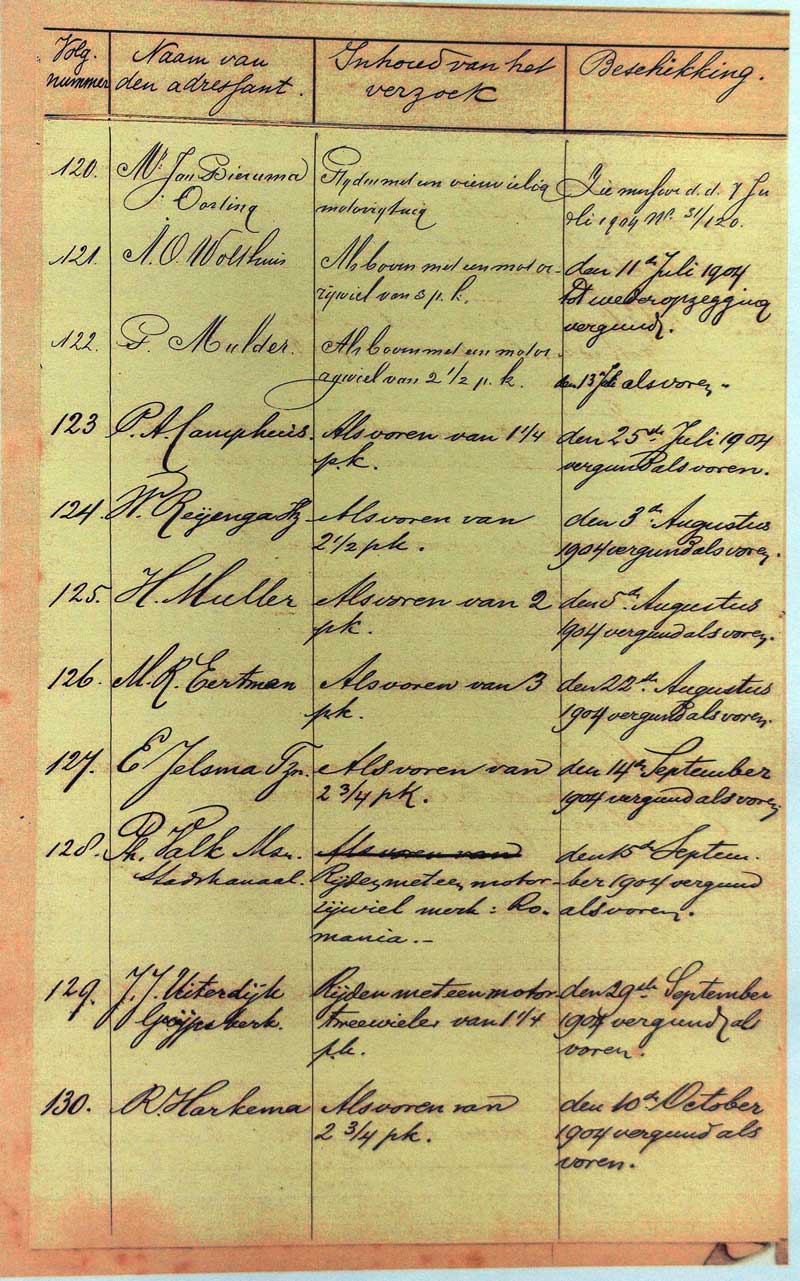 Volg. nummer
Naam van den adressant.
Inhoud van het verzoek
Beschikking.
120. Mr. Jan Bieruma Oosting
Rijden met een vierwielig motorrijtuig
Zie missive d.d. 7 Juli 1904 No. 31/120.
121. N. O. Wolthuis
Als boven met een motorrijwiel van 3 p.k.
den 11den Juli 1904 tot wederopzegging vergund.
122. P. Mulder.
Als boven met een motorrijwiel van 2 1/2 p.k.
den 13 Juli alsvoren.
123 P. A. Camphuis.
Alsvoren van 1 1/4 p.k.
den 25sten Juli 1904 vergund alsvoren.
124. W. Reijenga Hz
Alsvoren van 2 1/2 pk.
den 3den Augustus 1904 vergund alsvoren.
125. H. Muller
Alsvoren van 2 pk.
den 5den Augustus 1904 vergund alsvoren.
126. M. R. Eertman
Alsvoren van 3 pk.
den 22sten Augustus 1904 vergund alsvoren.
127. E Jelsma Tzn.
Alsvoren van 2 3/4 pk.
den 14den September 1904 vergund alsvoren
128. Ph. Valk Mzn. Stadskanaal.
Alsvoren van
Rijden met een motorrijwiel merk: Romania.-
den 15den September 1904 vergund alsvoren.
129. J. J. Uiterdijk Grijpskerk.
Rijden met een motortweewieler van 1 1/4 p.k.
den 29sten September 1904 vergund als voren.
130. R. Harkema
Alsvoren van 2 3/4 pk.
den 10den October 1904 vergund als voren.